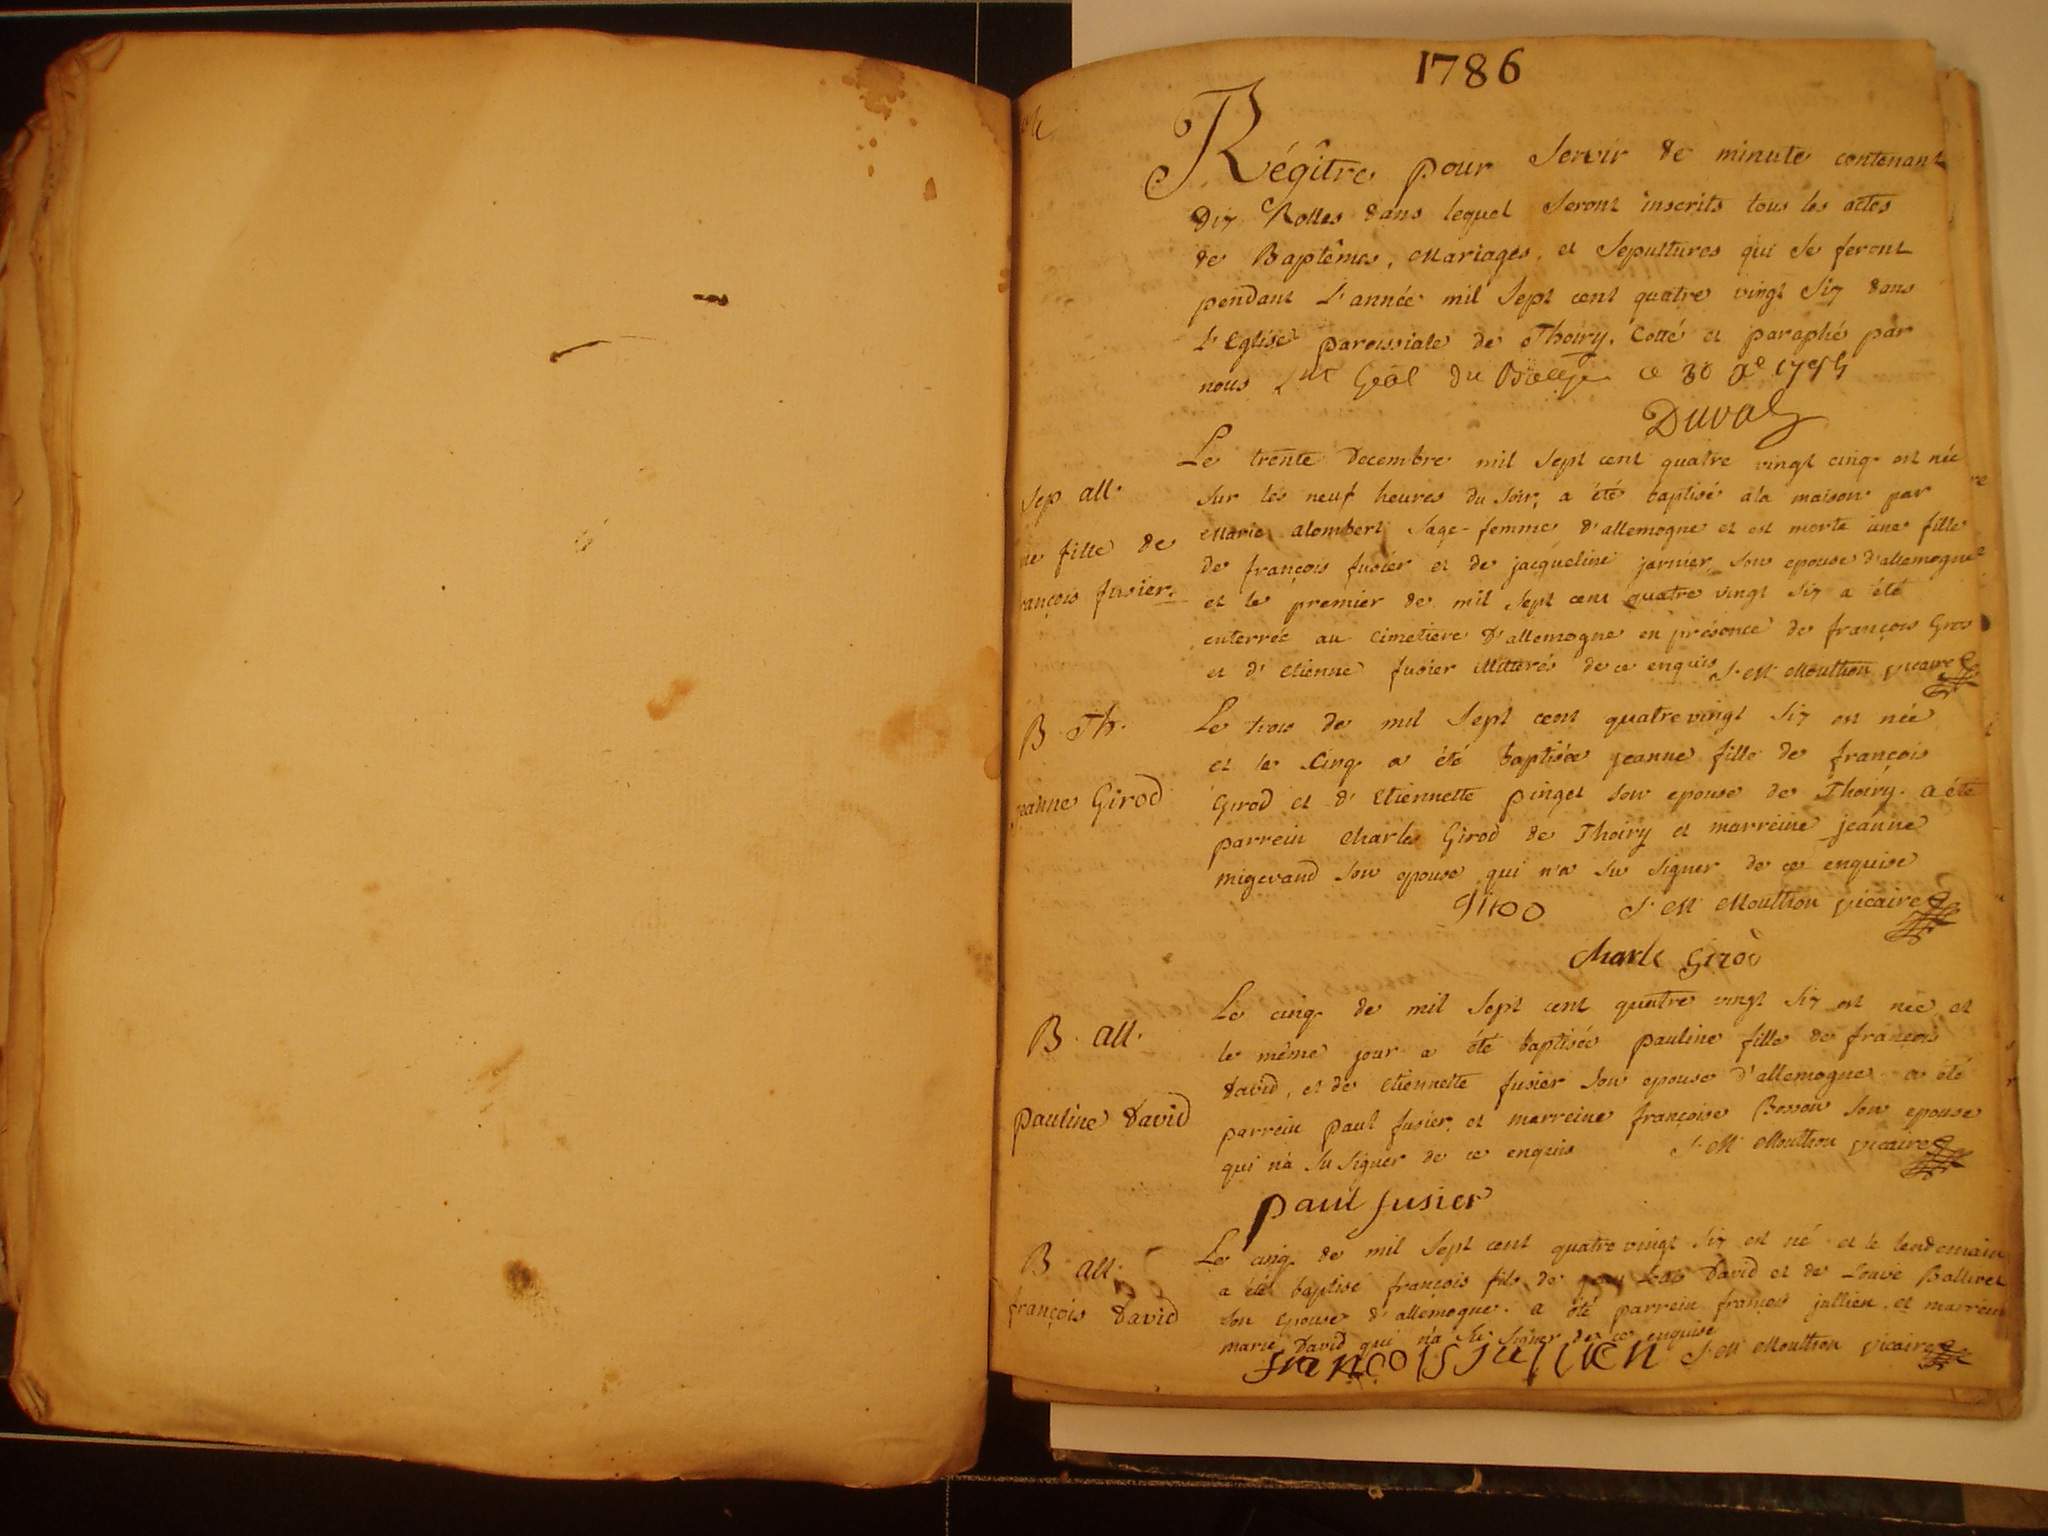 1786
Régître pour Servir de minute contenant
Dix Rolles dans lequel Seront inscrits tous les actes
de Baptêmes, Mariages, et Sepultures qui Se feront
pendant L'année mil Sept cent quatre vingt Six dans
L'Eglise paroissiale de Thoiry. Cotté et paraphé par
nous Lnt Gëal du Bailge ce 30
Duval
Sep. all.
ne fille de
rançois fusier.
Le trente Decembre mil Sept cent quatre vingt cinq est née
Sur les neuf heures du Soir, a été baptisé ala maison par
Marie alombert Sage-femme d'allemogne et est morte une fille
de françois fusier et de jacqueline jarnier Son epouse d'allemogne
et le premier de mil Sept cent quatre vingt Six a été
enterrée au Cimetiere D'allemogne en présence de françois Gros
et d'Etienne fusier illiterés de ce enquis J. M. Mouthon vicaire
B. Th.
jeanne Girod
Le trois de mil Sept cent quatre vingt Six est née
et le Cinq a été baptisée jeanne fille de françois
Girod et d'Etiennette pinget Son epouse de Thoiry. a été
parrein Charle Girod de Thoiry et marreine jeanne
migevand Son epouse qui n'a Su Signer de ce enquise
Girod J. M. Mouthon vicaire
charle Girod
B. all.
pauline David
Le cinq de mil Sept cent quatre vingt Six est née et
le même jour a été baptisée pauline fille de françois
David, et de Etiennette fusier Son epouse d'allemogne a été
parrein paul fusier, et marreine françoise Besson Son epouse
qui n'a Su Signer de ce enquis J. M. Mouthon vicaire
paul fusier
B. all.
françois David
Le cinq de mil Sept cent quatre vingt Six est né et le lendemain
a été baptisé françois fils de David et de Louise Ballivet
Son Epouse d'allemogne. a été parrein françois jullien, et marreine
marie David qui n'a Su Signer de ce enquise J. M. Mouthon vicaire
francois jullien